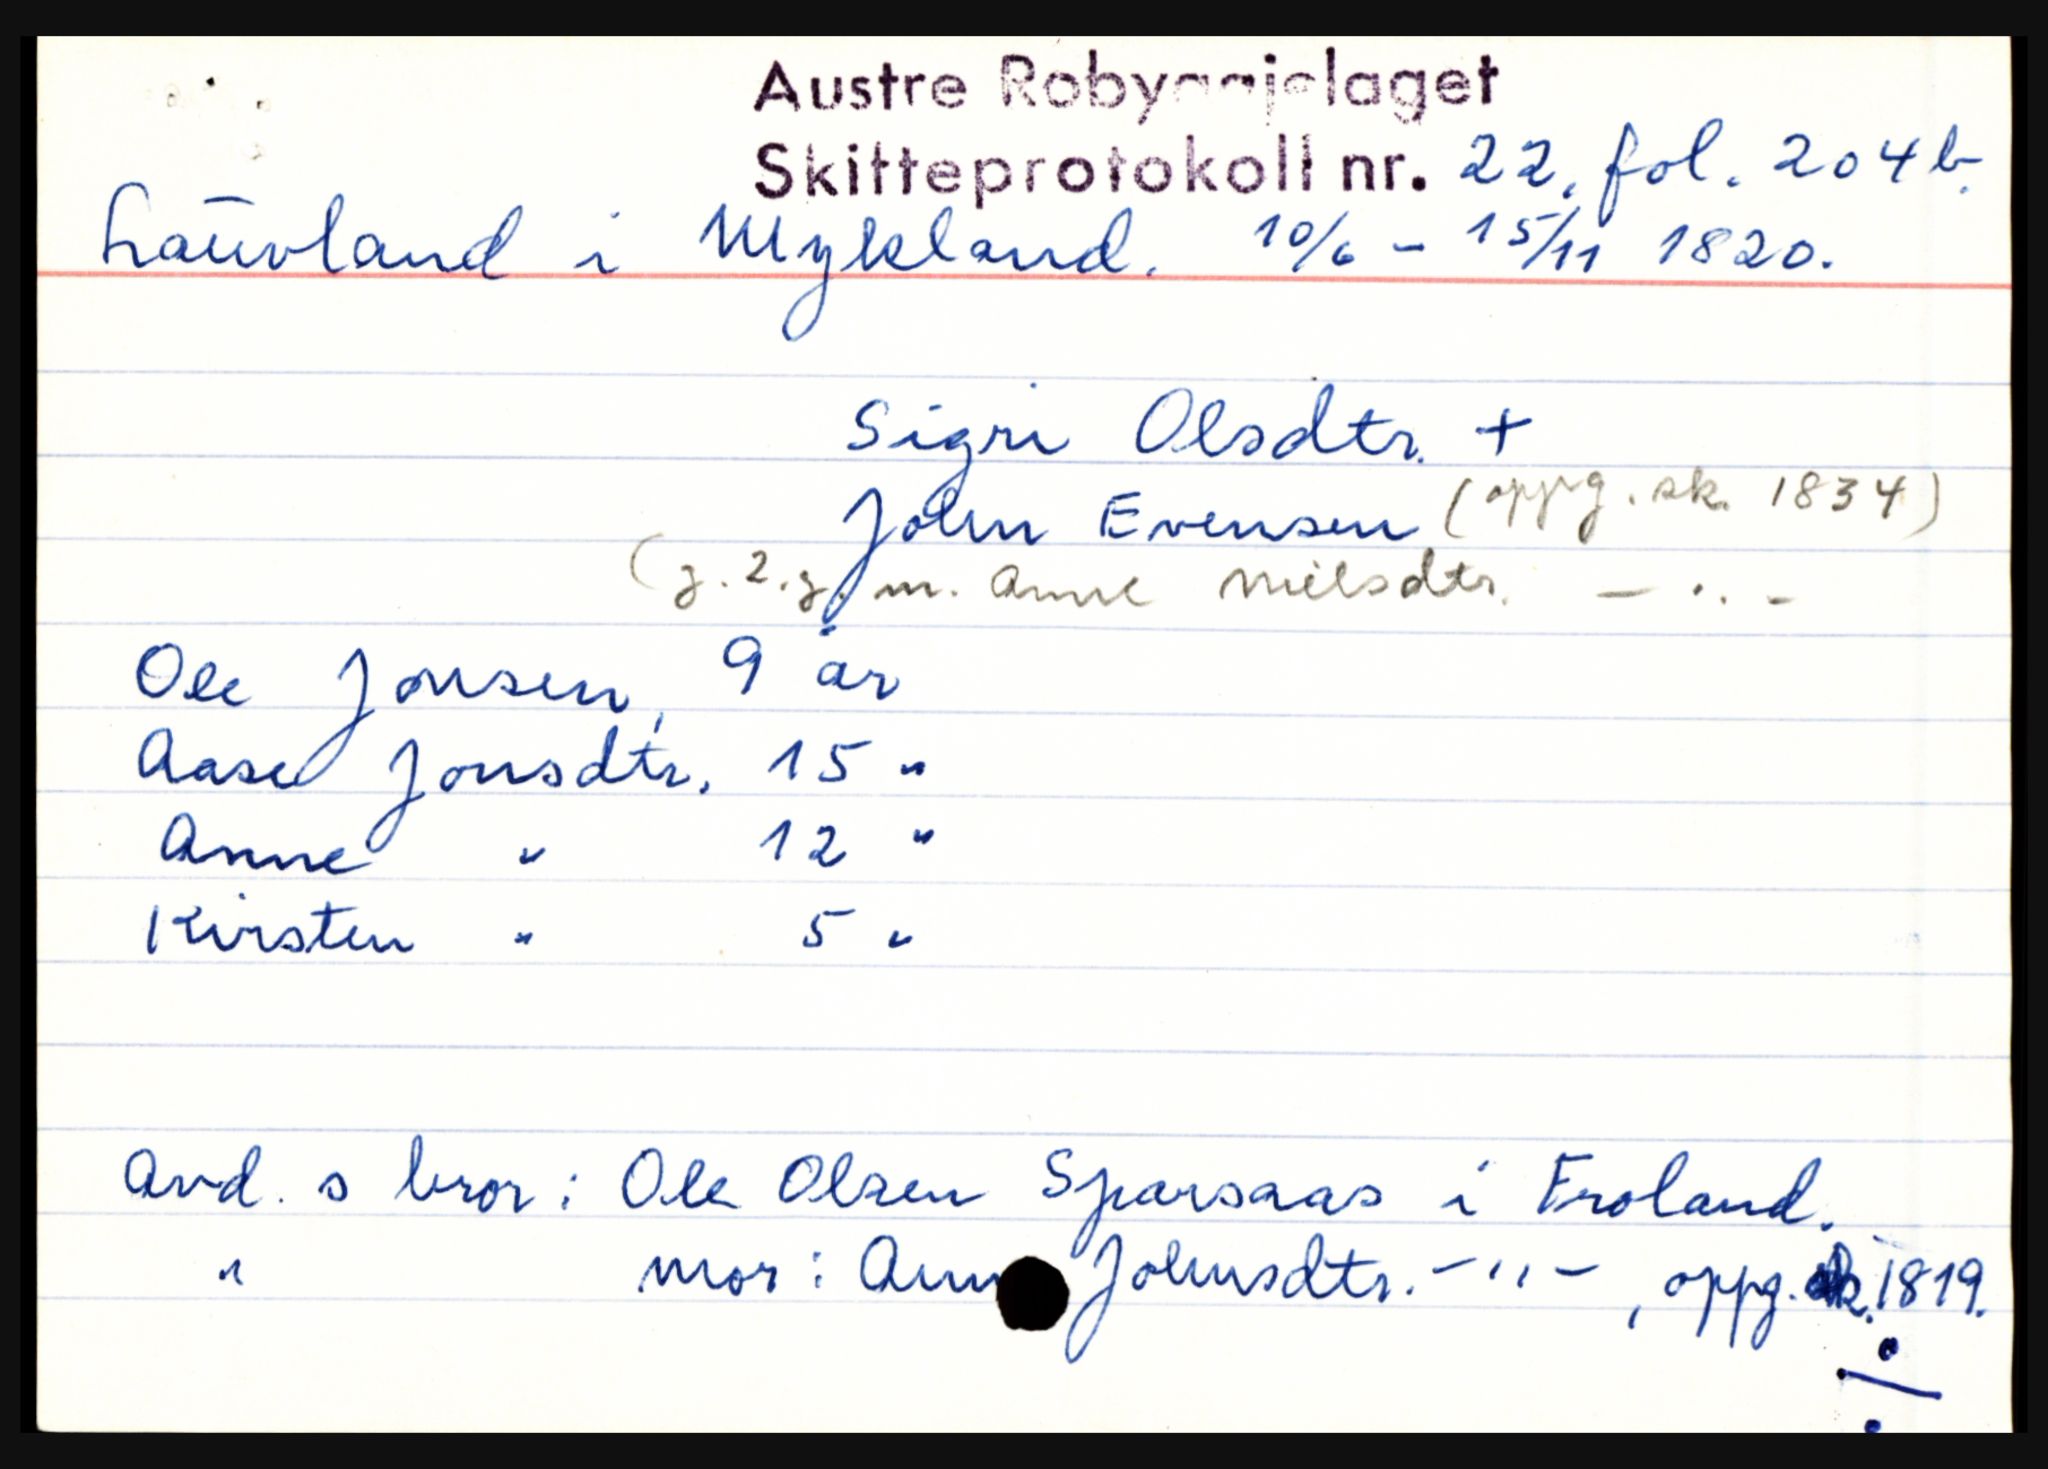 Austre Robyggjelaget
Skifteprotokoll nr. 22, fol. 204b.
Lauvland i Mykland. 10/6 - 15/11 1820.
Sigri Olsdtr. +
John Evensen (oppg. sk. 1834)
(g. 2. g. m. Anne Nilsdtr. - . . -
Ole Jonsen, 9 år
Aase Jonsdtr. 15 "
Anne " 12 "
Kirsten " 5 "
Avd. s bror: Ole Olsen Sparsaas i Froland.
" mor: Johnsdtr. - " -, oppg. sk. 1819.